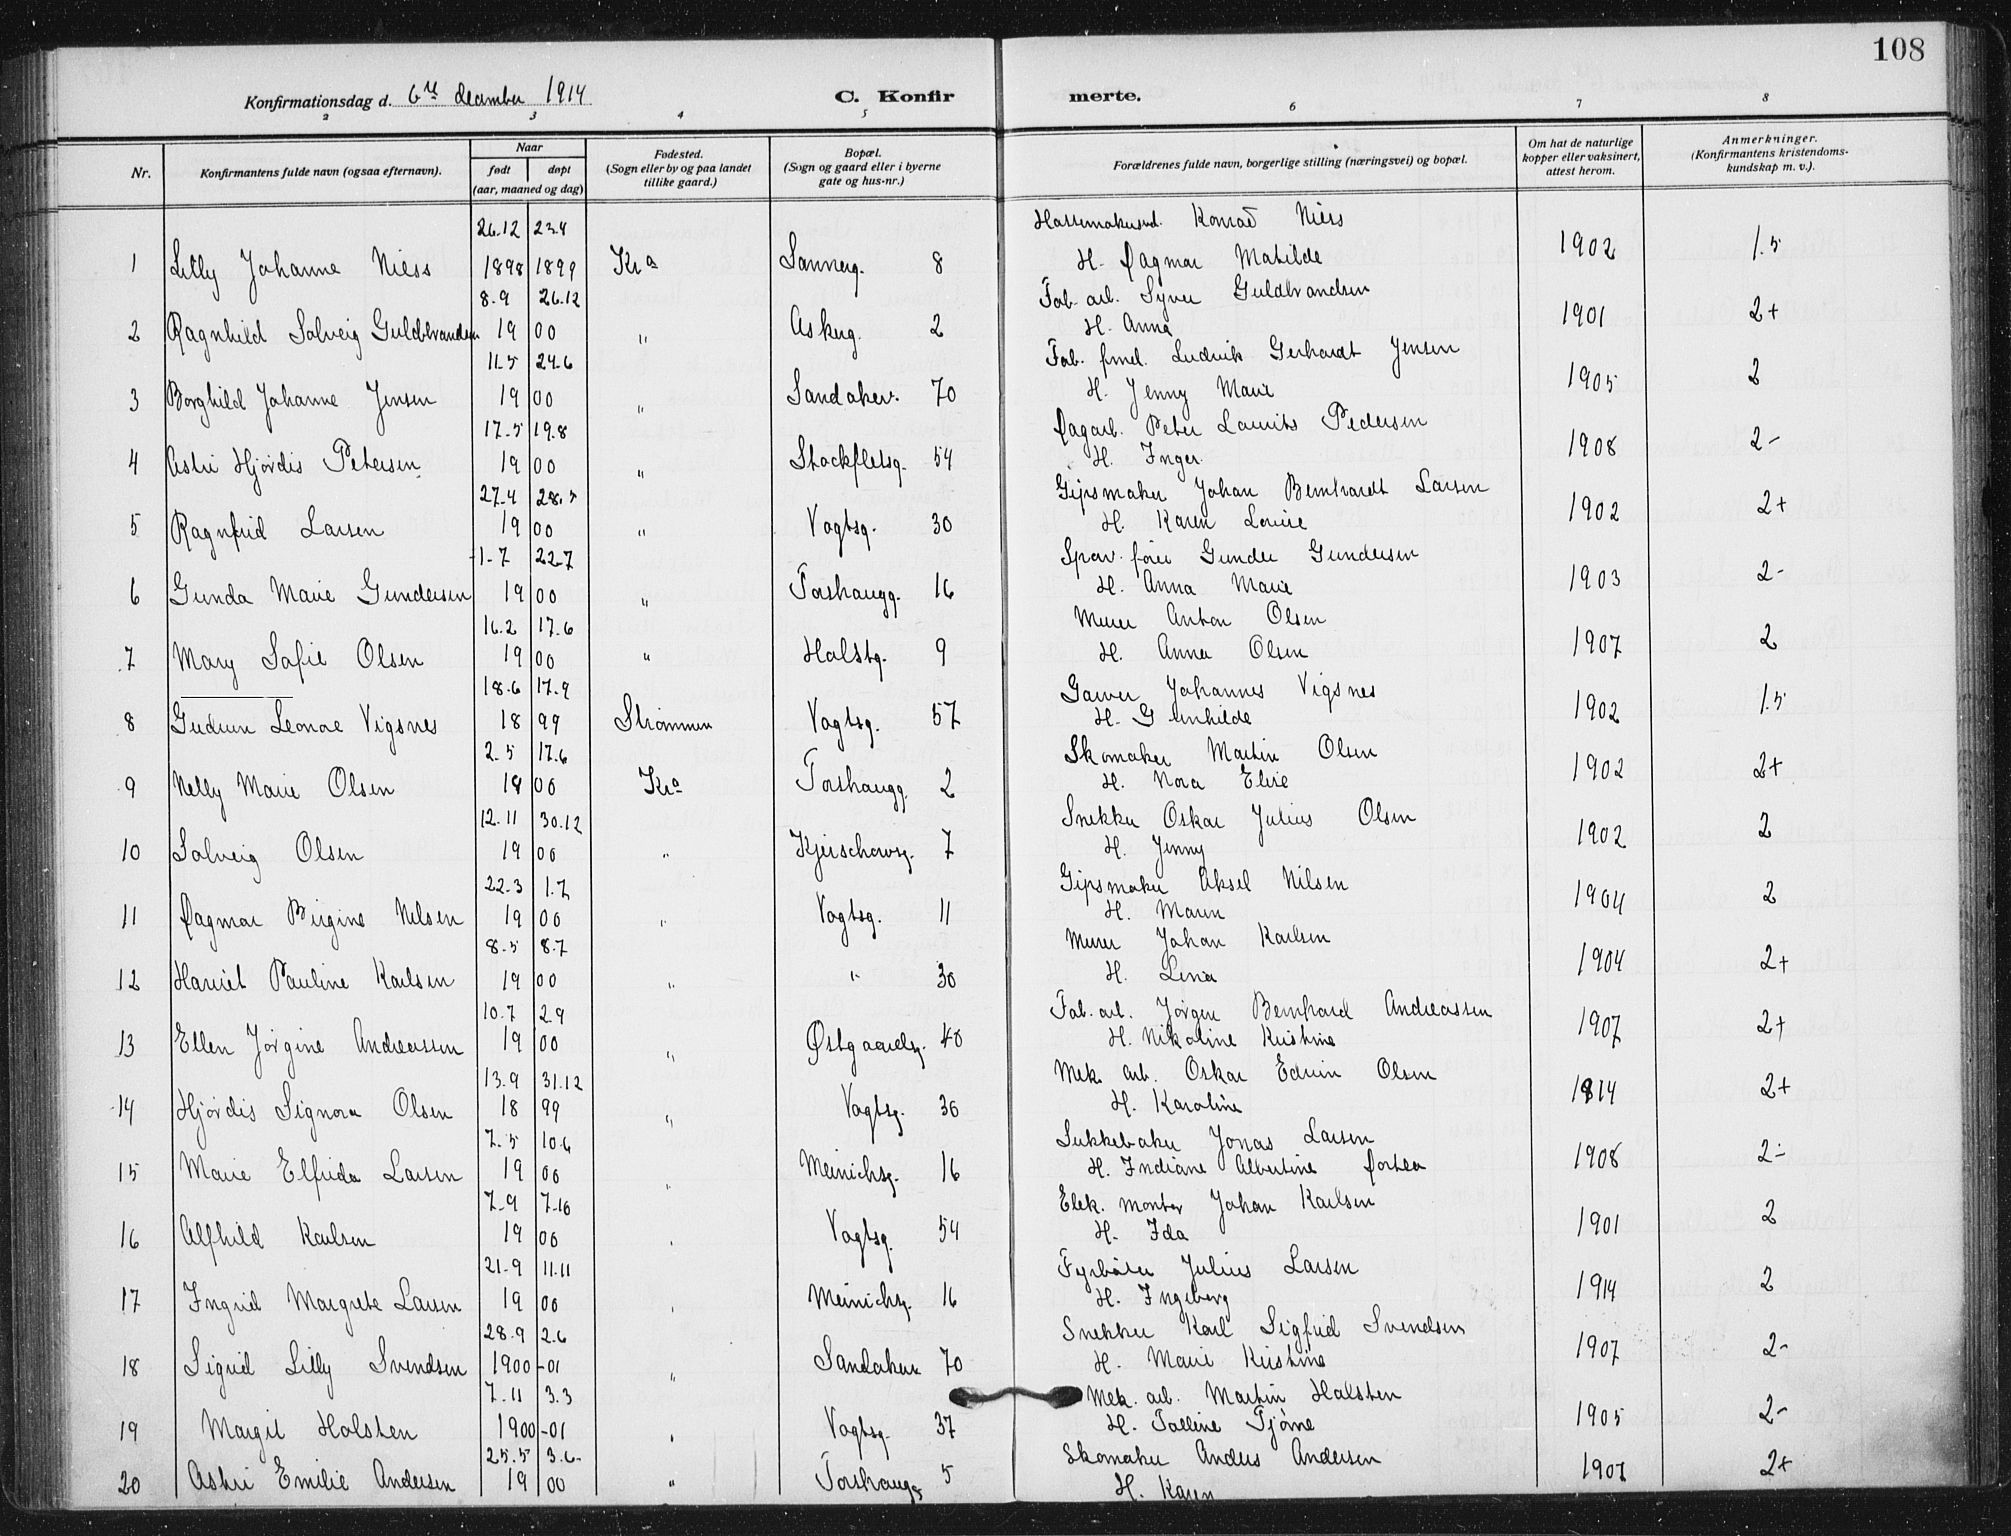 108
Konfirmationsdag d. 6te december 1914 C. Konfir merte.
2 3 4 5 6 7 8
Nr. Konfirmantens fulde navn (ogsaa efternavn). Naar født døpt (aar, maaned og dag) Fødested. (Sogn eller by og paa landet tillike gaard.) Bopæl. (Sogn og gaard eller i byerne gate og hus-nr.) Forældrenes fulde navn, borgerlige stilling (næringsvei) og bopæl. Om hat de naturlige kopper eller vaksinert, attest herom. Anmerkninger. (Konfirmantens kristendoms- kundskap m. v.).
26.12 23.4 Konrad Niess
1 Lilly Johanne Niess 1898 1899 Kra Sannerg. 8 H. Dagmar Mathilde 1902 1.5
8.9 26.12 Fab. arb. Syver Guldbrandsen
2 Ragnhild Solveig Guldbrandsen 19 00 " Askerg. 2 H. Anna 1901 2+
11.5 24.6 Fab. fmd. Ludvik Gerhardt Jensen
3 Borghild Johanne Jensen 19 00 " Sandakerv. 70 H. Jenny Marie 1905 2
17.5 19.8 Dagarb. Peter Laurits Pedersen
4 Astri Hjørdis Petersen 19 00 " Stockfletsg. 54 H. Inger 1908 2-
27.4 28.5 Gipsmaker Johan Bernhardt Larsen
5 Ragnfrid Larsen 19 00 " Vogtsg. 30 H. Karen Lovise 1902 2+
1-7 22.7 Sporv. fører Gunder Gundersen
6 Gunda Marie Gundersen 19 00 " Torshaugg. 16 H. Anna Marie 1903 2-
16.2 17.6 Murer Anton Olsen
7 Mary Sofie Olsen 19 00 " Holstg. 9 H. Anna Olsen 1907 2
18.6 17.9 Garver Johannes Vigsnes
8 Gudrun Leonore Vigsnes 18 99 Strømmen Vogtsg. 57 H. Gunhilde 1902 1.5
2.5 17.6 Skomaker Martin Olsen
9 Nelly Marie Olsen 19 00 Kra Torshaugg. 2 H. Nora Elise 1902 2+
12.11 30.12 Snekker Oskar Julius Olsen
10 Solveig Olsen 19 00 " Kjerschowsg. 7 H. Jenny 1902 2
22.3 1.7 Gipsmaker Aksel Nilsen
11 Dagmar Birgine Nilsen 19 00 " Vogtsg. 11 H. Maren 1904 2
8.5 8.7 Murer Johan Karlsen
12 Harriet Pauline Karlsen 19 00 " " 30 H. Lina 1904 2+
10.7 2.9 Fab. arb. Jørgen Bernhard Andreassen
13 Ellen Jørgine Andreassen 19 00 " Østgaardsg. 40 H. Nikoline Kristine 1907 2+
13.9 31.12 Mek. arb. Oskar Edvin Olsen
14 Hjørdis Signora Olsen 18 99 " Vogtsg. 36 H. Karoline 1914 2+
7.5 10.6 Sukkebaker Jonas Larsen
15 Marie Elfrida Larsen 19 00 " Meinichsg. 16 H. Indiane Albertine Dorthea 1908 2-
7.9 7.10 Elek. montør Johan Karlsen
16 Alfhild Karlsen 19 00 " Vogtsg. 54 H. Ida 1901 2
21.9 11.11 Fyrbøter Julius Larsen
17 Ingrid Margrete Larsen 19 00 " Meinichsg. 16 H. Ingeborg 1914 2
28.9 2.6 Snekker Karl Sigfrid Svendsen
18 Sigrid Lilly Svendsen 1900 -01 " Sandakerv. 70 H. Marie Kristine 1907 2-
7.11 3.3 Mek. arb. Martin Halsten
19 Margit Holsten 1900 -01 " Vogtsg. 37 H. Talline Tjørne 1905 2-
25.5 3.6 Skomaker Anders Andersen
20 Astri Emilie Andersen 19 00 " Torshaugg. 5 H. Karen 1907 2+